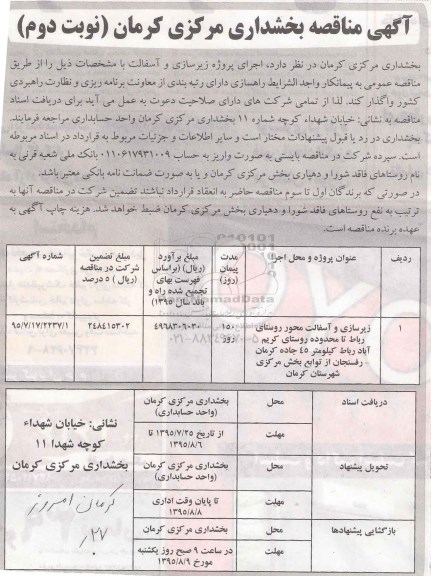 آگهی مناقصه بخشداری مرکزی کرمان (نوبت دوم)
بخشداری مرکزی کرمان در نظر دارد، اجرای پروژه زیرسازی و آسفالت با مشخصات ذیل را از طریق
مناقصه عمومی به پیمانکار واجد الشرایط راهسازی دارای رتبه بندی از معاونت برنامه ریزی و نظارت راهبردی
کشور واگذار کند. لذا از تمامی شرکت های دارای صلاحیت دعوت به عمل می آید برای دریافت اسناد
مناقصه به نشانی: خیابان شهداء، کوچه شماره ۱۱ بخشداری مرکزی کرمان واحد حسابداری مراجعه فرمایند.
بخشداری در رد یا قبول پیشنهادات مختار است و سایر اطلاعات و جزئیات مربوط به قرارداد در اسناد مربوطه
است. سپرده شرکت در مناقصه بایستی به صورت واریز به حساب ۰۱۱۰۶۱۷۹۳۱۰۰۹ بانک ملی شعبه قرنی به
نام روستاهای فاقد شورا و دهیاری بخش مرکزی کرمان و یا به صورت ضمانت نامه بانکی معتبر باشد.
در صورتی که برندگان اول تا سوم مناقصه حاضر به انعقاد قرارداد نباشند تضمین شرکت در مناقصه آنها به
ترتیب به نفع روستاهای فاقد شورا و دهیاری بخش مرکزی کرمان ضبط خواهد شد. هزینه چاپ آگهی به
عهده برنده مناقصه است.
ردیف
عنوان پروژه و محل اجرا
مدت پیمان (روز)
مبلغ برآورد (ریال) (براساس فهرست بهای تجمیع شده راه و باند سال ۱۳۹۵)
مبلغ تضمین شرکت در مناقصه (ریال) ۵ درصد
شماره آگهی
۱
زیرسازی و آسفالت محور روستای
رباط تا محدوده روستای کریم
آباد رباط کیلومتر ۴۵ جاده کرمان
- رفسنجان از توابع بخش مرکزی
شهرستان کرمان
۱۵۰ روز
۴۹۶۸۳۰۶۰۳۰
۲۴۸۴۱۵۳۰۲
۹۵/۷/۱۷/۲۲۳۷/۱
دریافت اسناد
محل
بخشداری مرکزی کرمان (واحد حسابداری)
مهلت
از تاریخ ۱۳۹۵/۷/۲۵ تا ۱۳۹۵/۸/۶
تحویل پیشنهاد
محل
بخشداری مرکزی کرمان (واحد حسابداری)
مهلت
تا پایان وقت اداری ۱۳۹۵/۸/۸
بازگشایی پیشنهادها
محل
بخشداری مرکزی کرمان
مهلت
در ساعت ۹ صبح روز یکشنبه مورخ ۱۳۹۵/۸/۹
نشانی: خیابان شهداء
کوچه شهدا ۱۱
بخشداری مرکزی کرمان
کرمان امروز